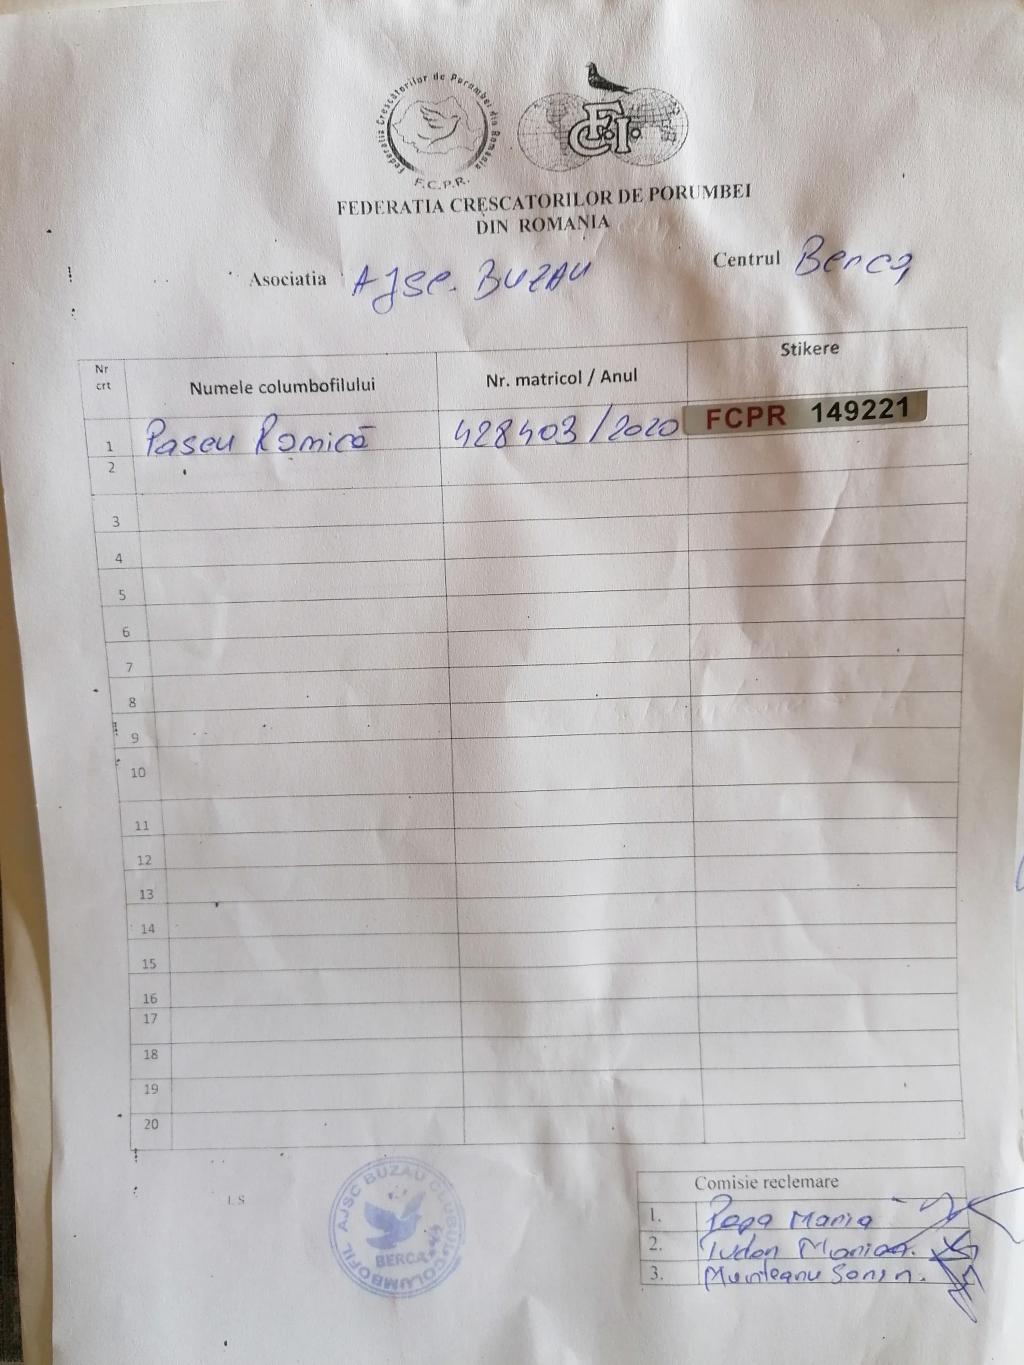 Federatia Crescătorilor de Porumbei din Romania
F.C.P.R.
FCI
FEDERATIA CRESCATORILOR DE PORUMBEI
DIN ROMANIA
Asociatia AJSC. BUZAU
Centrul Berca
Nr crt
Numele columbofilului
Nr. matricol / Anul
Stikere
1 Pascu Romică 428403/2020 FCPR 149221
2
3
4
5
6
7
8
9
10
11
12
13
14
15
16
17
18
19
20
LS
AJSC BUZAU CLUBUL COLUMBOFIL
BERCA
Comisie reclemare
1. Popa Maria
2. Tudor Marian.
3. Munteanu Sorin.